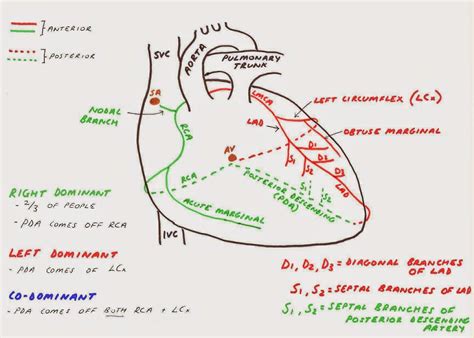 ANTERIOR
POSTERIOR
SVC
AORTA
PULMONARY
TRUNK
SA
NODAL
BRANCH
RCA
LMCA
LEFT CIRCUMFLEX (LCx)
LAD
OBTUSE MARGINAL
AV
S₁
S₂
D₁
D₂
D₃
LAD
RCA
S₁
S₂
POSTERIOR DESCENDING
(PDA)
ACUTE MARGINAL
IVC
RIGHT DOMINANT
- 2/3 OF PEOPLE
- PDA COMES OFF RCA
LEFT DOMINANT
- PDA COMES OF LCx
CO-DOMINANT
- PDA COMES OFF BOTH RCA + LCx
D₁, D₂, D₃ = DIAGONAL BRANCHES
OF LAD
S₁, S₂ = SEPTAL BRANCHES OF LAD
S₁, S₂ = SEPTAL BRANCHES OF
POSTERIOR DESCENDING
ARTERY